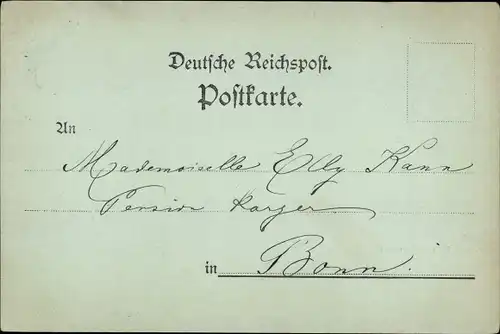 Deutsche Reichspost.
Postkarte.
An
Mademoiselle Elly Kann
Pension Karger
in Bonn.